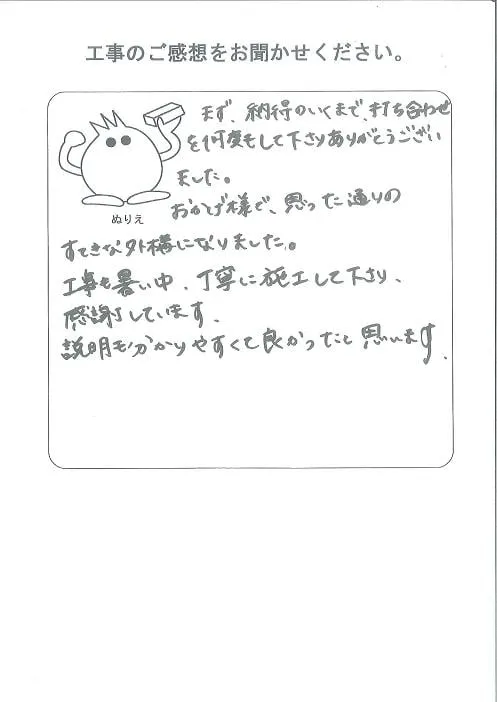 工事のご感想をお聞かせください。
まず、納得のいくまで、打ち合わせ
を何度もして下さりありがとうござい
ました。
おかげ様で、思った通りの
ぬりえ
すてきな外構になりました。
工事も暑い中、丁寧に施工して下さり、
感謝しています、
説明も分かりやすくて良かったと思います、